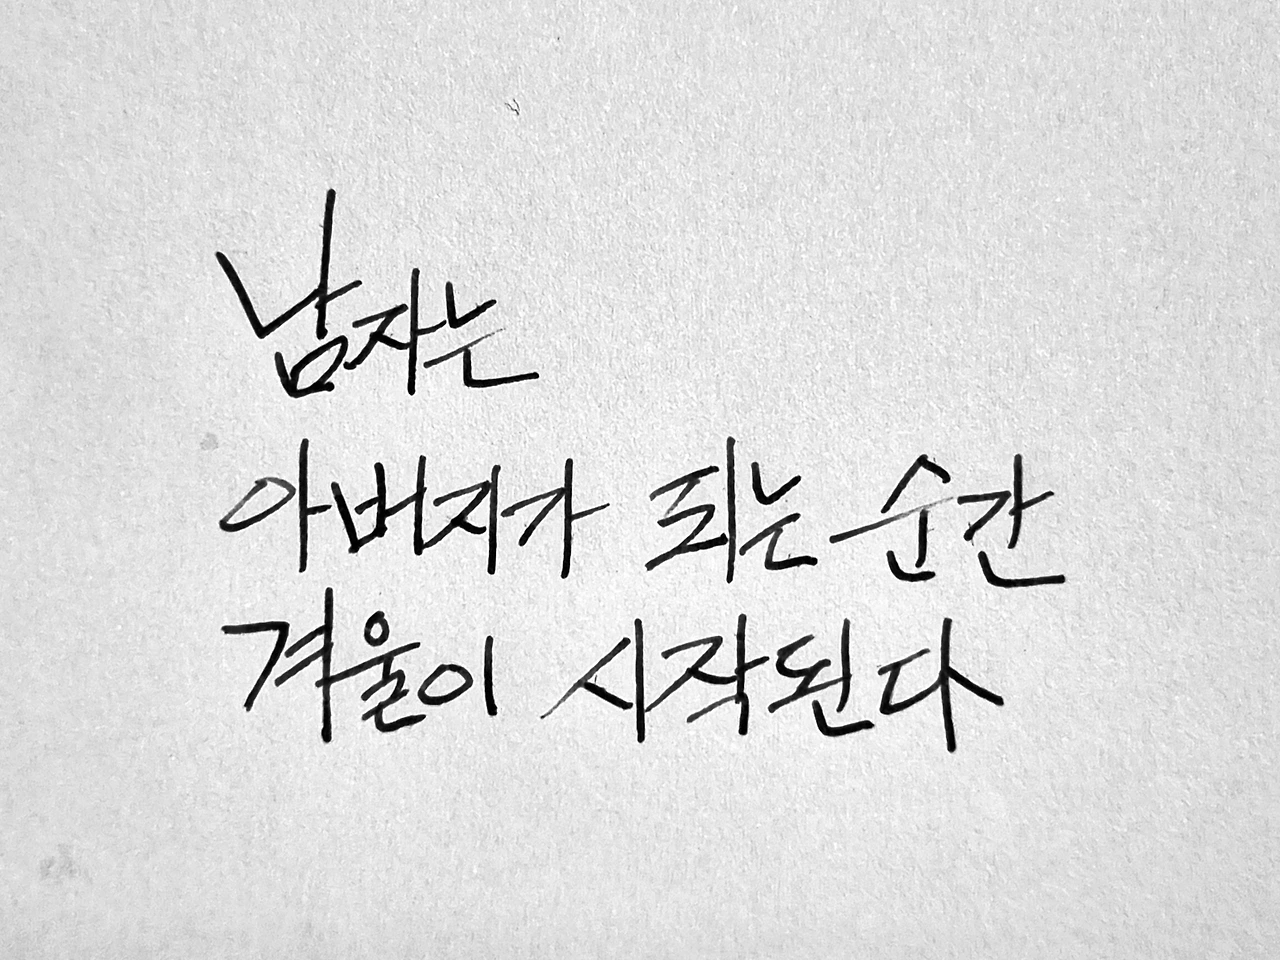 남자는
아버지가 되는 순간
겨울이 시작된다